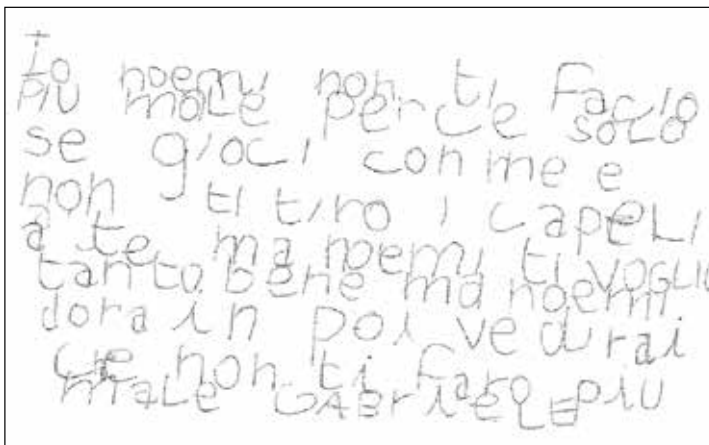 Io noemi non ti Facio
PIU mALE PErCE SOLO
se gioci con me e
non ti tiro i CAPELI
a te ma noemi ti VOGLIO
tanto bene ma noemi
dora in poi vedrai
Ce non ti Faro PIU
mALE GABriELE